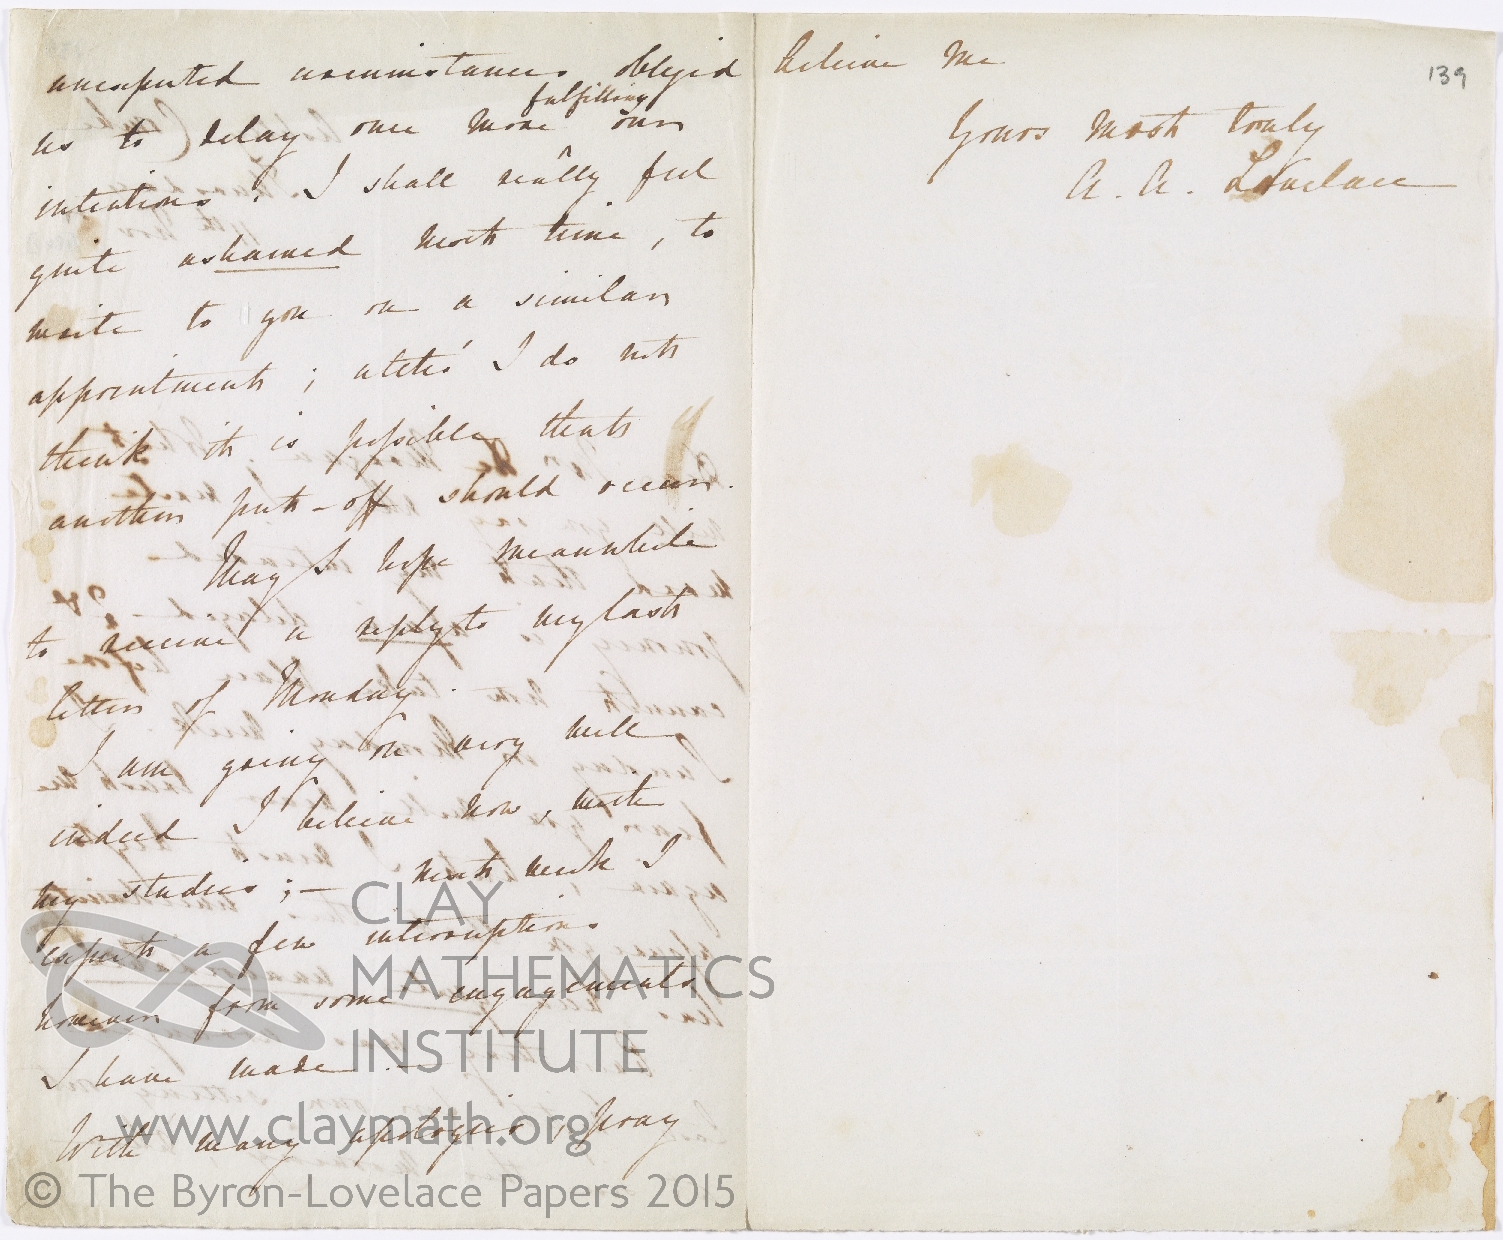 unexpected circumstances obliged
fulfilling
us to delay once more our
intentions. I shall really feel
quite ashamed next time, to
write to you on a similar
appointment; altho' I do not
think it is possible that
another put-off should occur.
May I hope meanwhile
to receive a reply to my last
letter of Monday.
I am going on very well
indeed I believe now, with
my studies; — next week I
expect a few interruptions
however from some engagements
I have made.—
With many apologies, pray
believe me
Yours most truly
A. A. Lovelace
139
CLAY
MATHEMATICS
INSTITUTE
www.claymath.org
© The Byron-Lovelace Papers 2015